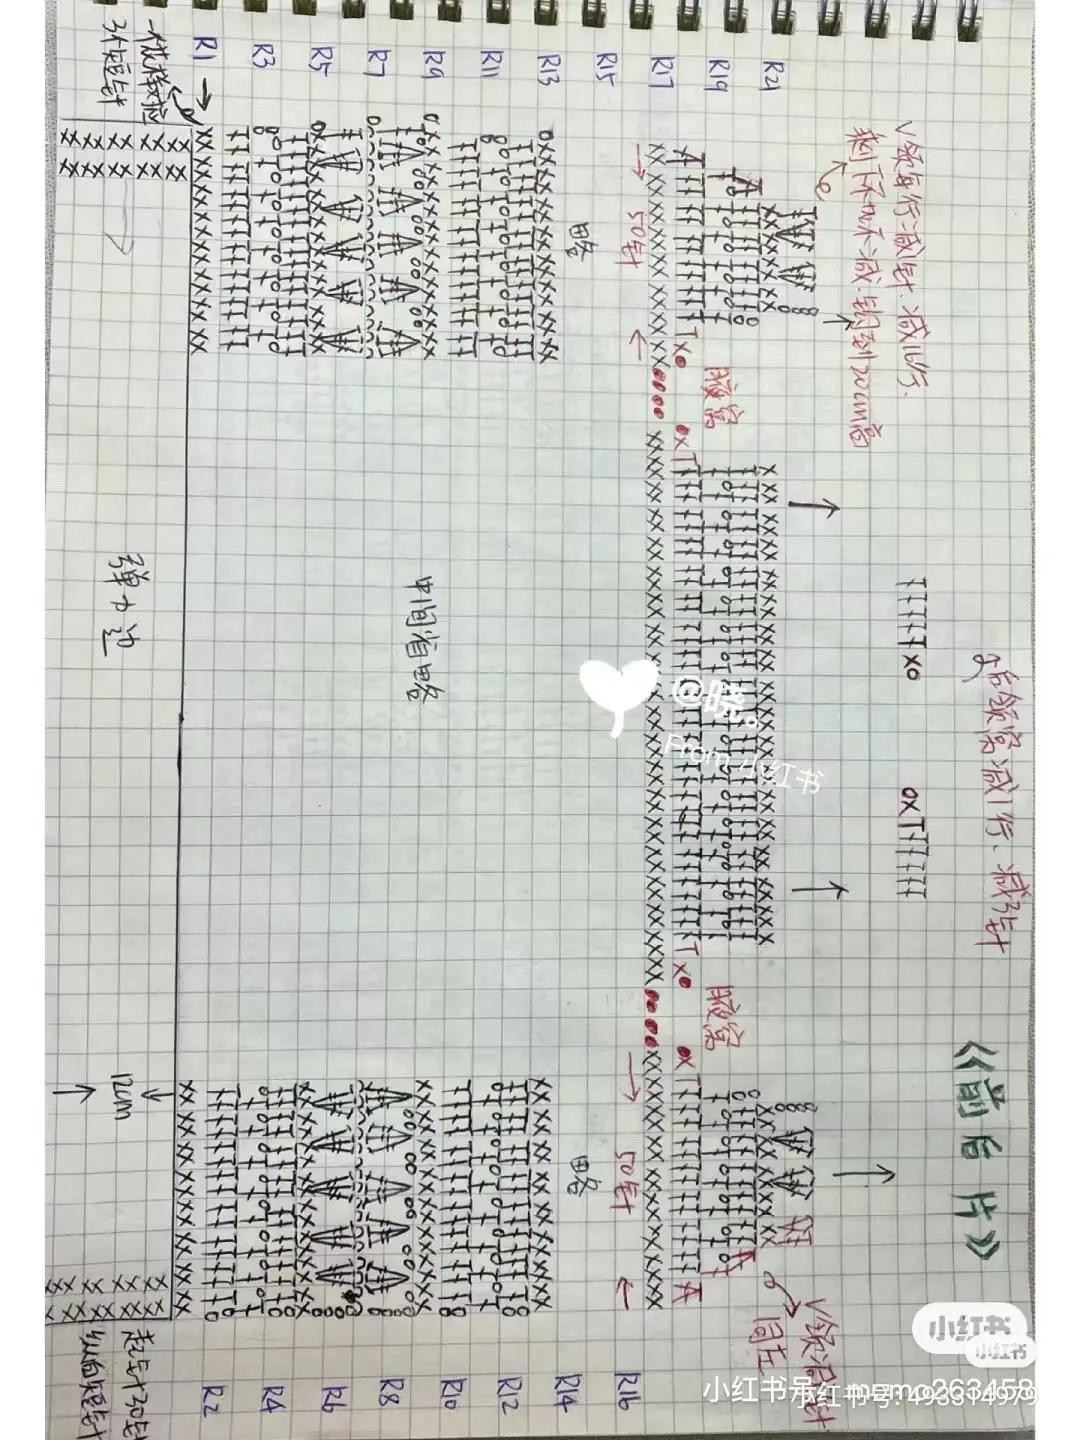 《前后片》
后领窝减1行、减3针
V领每行减1针.减16行.
剩下的不减.钩到20cm高
V领减针
同左
R21
R19
R17
R15
R13
R11
R9
R7
R5
R3
R1
腋窝
腋窝
50针
50针
略
略
中间省略
一花样对应
3个短针
弹力边
12cm
起针30针
纵向短针
R16
R14
R12
R10
R8
R6
R4
R2
@晓。
From 小红书
小红书
小红书
小红书号:493314979